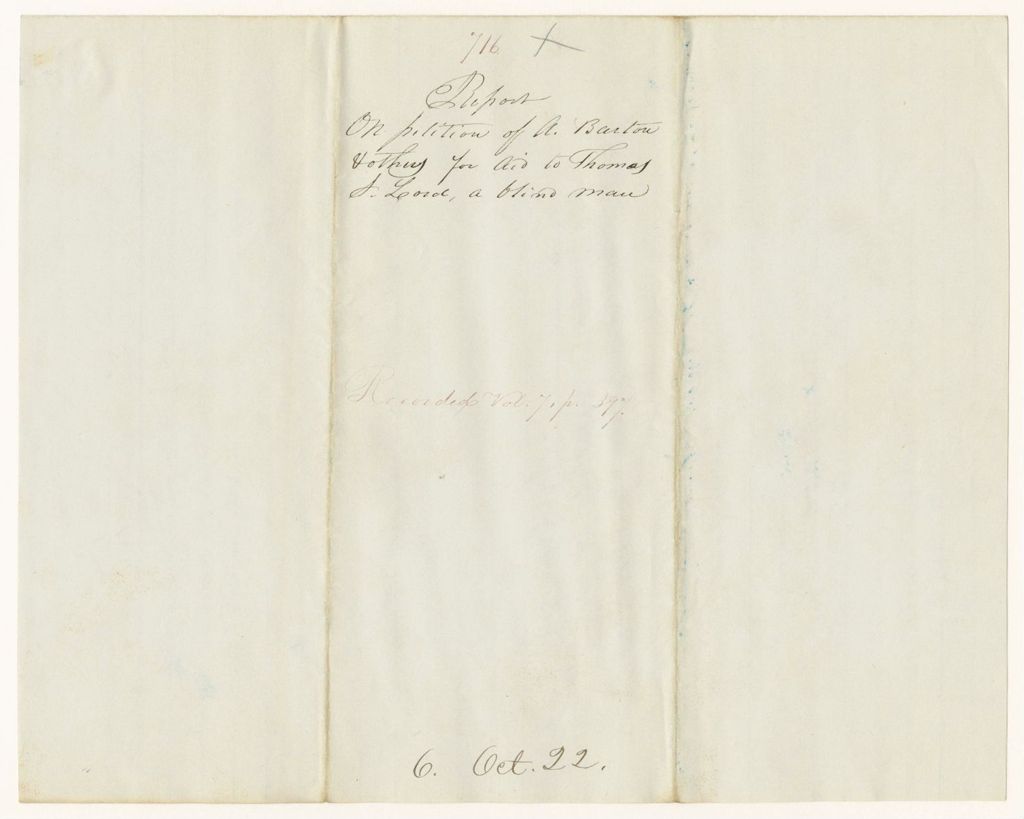 716 X
Report
On petition of A. Barton
& others for aid to Thomas
J. Lord, a blind man
Recorded Vol. 7, p. 397.
6. Oct. 22.